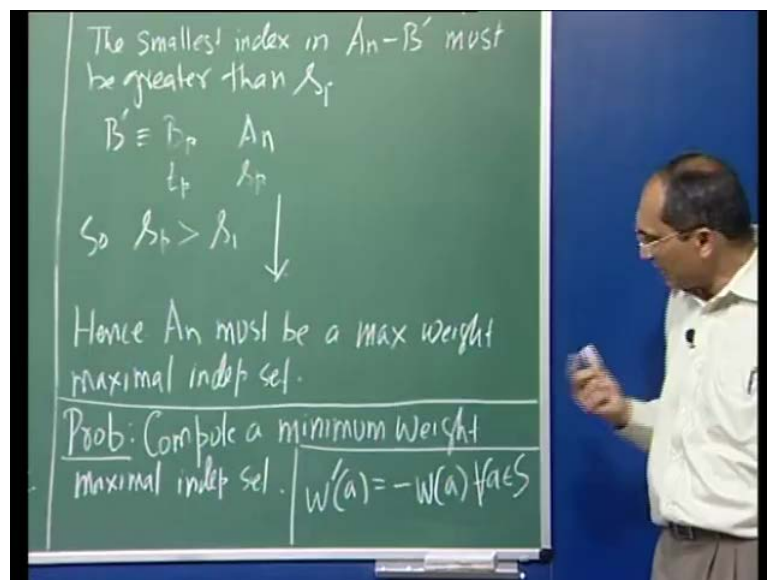 The smallest index in An-B' must
be greater than s₁
B' ≡ Bp An
tp sp
So sp > s₁
Hence An must be a max weight
maximal indep set.
Prob: Compute a minimum weight
maximal indep set.
w'(a) = -w(a) ∀a∈S